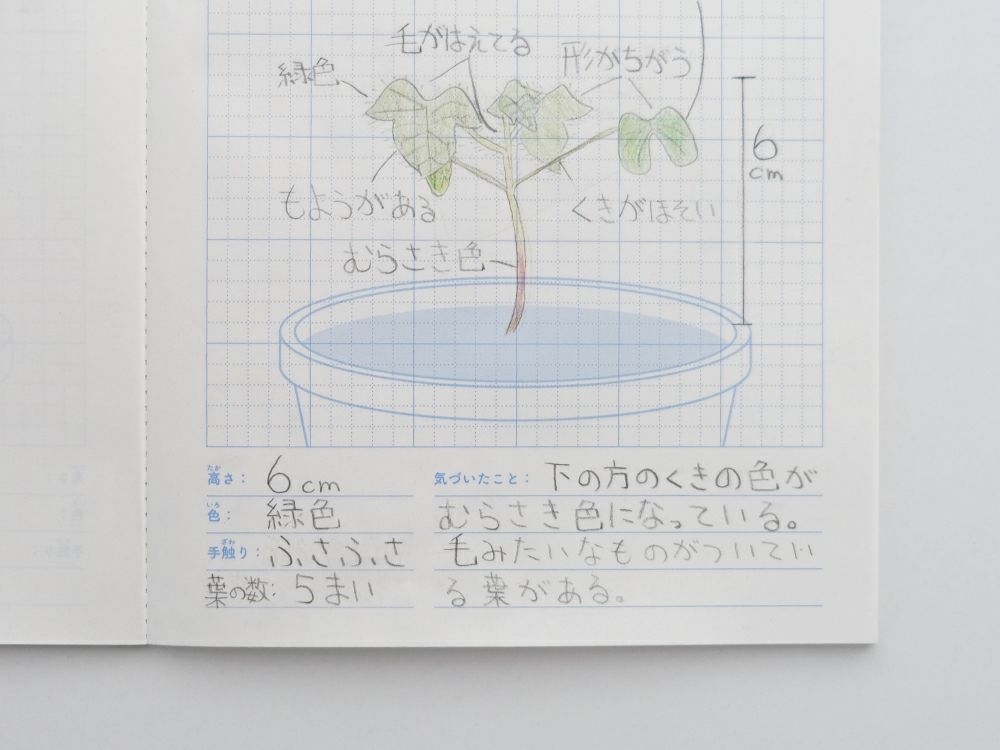 毛がはえてる
形がちがう
緑色
6
cm
もようがある
くきがほそい
むらさき色
高さ: 6cm
色: 緑色
手触り: ふさふさ
葉の数: 5まい
気づいたこと: 下の方のくきの色が
むらさき色になっている。
毛みたいなものがついてい
る葉がある。